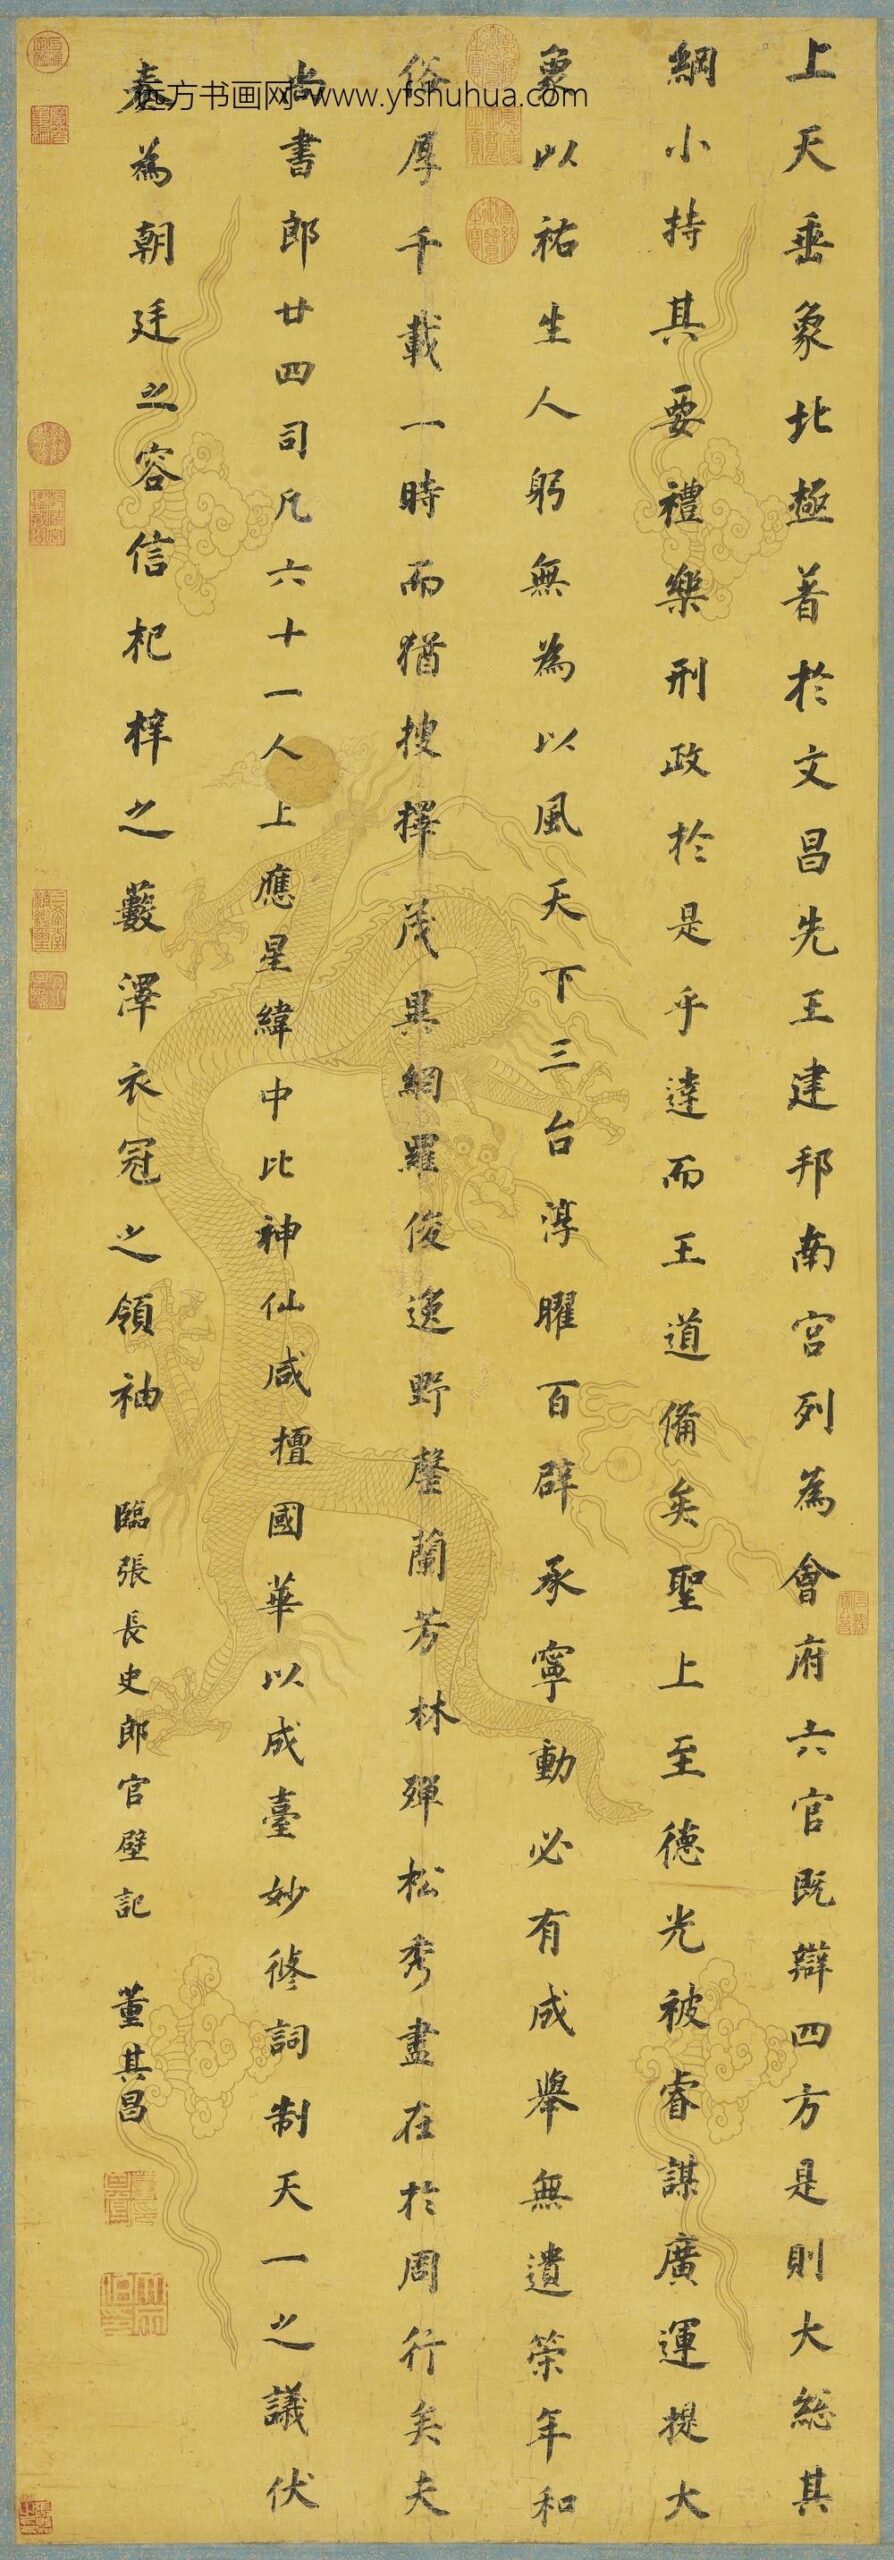 上天垂象北極著於文昌先王建邦南宮列為會府六官既辯四方是則大總其
綱小持其要禮樂刑政於是乎達而王道備矣聖上至德光被睿謀廣運提大
象以祐生人躬無為以風天下三台淳曜百辟承寧動必有成舉無遺策年和
俗厚千載一時而猶搜擇茂異網羅俊逸野罄蘭芳林殫松秀盡在於周行矣夫
尚書郎廿四司凡六十一人上應星緯中比神仙咸擅國華以成臺妙修詞制天一之議伏
奏為朝廷之容信杞梓之藪澤衣冠之領袖
臨張長史郎官壁記
董其昌
远方书画网 www.yfshuhua.com